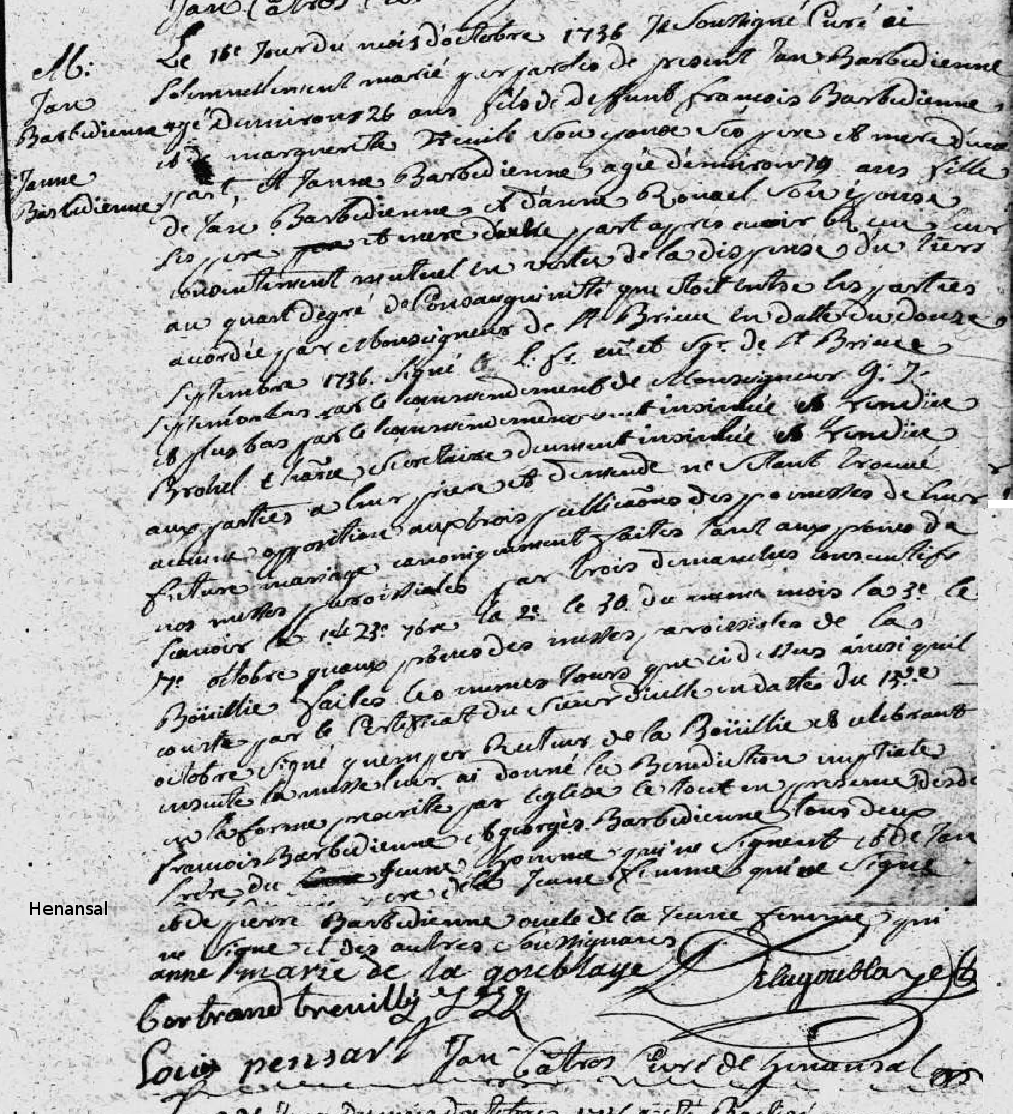 Jan Catros
M:
Jan
Barbedienne
Janne
Barbedienne
Le 16e Jour du mois d'octobre 1736 Je Soussigné Curé ai
Solemnellement marié par parolles de present Jan Barbedienne
agé d'environ 26 ans fils de deffunt francois Barbedienne
et de marguerite Treuilli son epouse ses pere et mere d'une
part, et Janne Barbedienne agée d'environ 19 ans fille
de Jan Barbedienne et d'anne Rouael son épouse
ses pere et mere d'aultre part apres avoir recu leur
consentement mentuel en vertu de la dispense du tiers
au quart degré de Consanguinité qui etoit entre les parties
acordée par Monseigneur de St Brieuc en datte du douze
Septembre 1736. Signé L. fr. eu. et Sgr. de St Brieuc
et plus bas par le commendement de Monseigneur G. J.
Brohel secretaire duement insinuée et rendüe
aux parties a leur priere et demende ne s'etant trouvé
aucune opposition aux trois publications des promesses de leur
future mariage canoniquement faites tant aux prones de
nos messes paroissiales par trois dimanches consecutifs
Scavoir la 1ere le 23e 7bre la 2e le 30 du meme mois la 3e le
7e octobre quaux prones des messes paroissiales de la
Boüillie faites les memes Jours que cidessus ainsi quil
conste par le Certificat du Sieur en datte du 13e
octobre Signé quemper Recteur de la Boüillie et celebrant
ensuite la messe leur ai donné la Benediction nuptiale
en la forme prescrite par l'eglise le tout en presence desde
francois Barbedienne et georges Barbedienne tous deux
frere du Jeune homme qui ne signent et de Jan
pere de la Jeune femme qui ne signe
et de pierre Barbedienne oncle de la Jeune femme qui
ne signe et des autres Soussignants
anne marie de la goublaye Delagoublaye
bertrand treuilly
Louis pensart Jan Catros Curé de henansal
Henansal